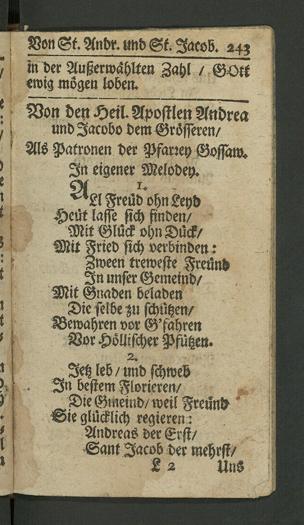 Von St. Andr. und St. Jacob. 243
in der Außerwählten Zahl / GOtt
ewig mögen loben.
Von den Heil. Apostlen Andrea
und Jacobo dem Grösseren /
Als Patronen der Pfarrey Gossaw.
In eigener Melodey.
1.
ALl Freüd ohn Leyd
Heüt lasse sich finden /
Mit Glück ohn Dück /
Mit Fried sich verbinden :
Zween treweste Freünd
In unser Gemeind /
Mit Gnaden beladen
Die selbe zu schützen /
Bewahren vor G'fahren
Vor Höllischer Pfützen.
2.
Jetz leb / und schweb
In bestem Florieren /
Die Gmeind / weil Freünd
Sie glücklich regieren :
Andreas der Erst /
Sant Jacob der mehrst /
L 2 Uns